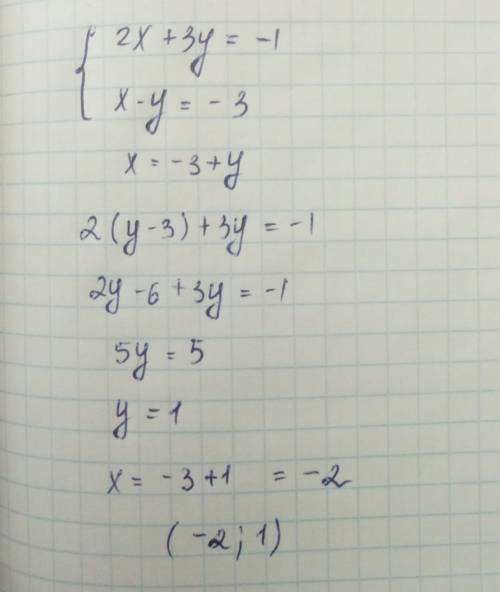 { 2x + 3y = -1
x - y = - 3
x = -3 + y
2 (y - 3) + 3y = -1
2y - 6 + 3y = -1
5y = 5
y = 1
x = -3 + 1 = -2
(-2; 1)